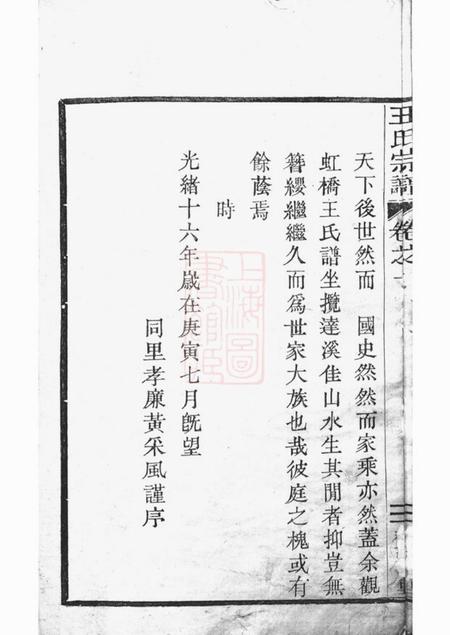 王氏宗譜
卷之
天下後世然而　國史然然而家乘亦然蓋余觀
虹橋王氏譜坐攬達溪佳山水生其閒者抑豈無
簪纓繼繼久而為世家大族也哉彼庭之槐或有
餘蔭焉
時
光緒十六年歲在庚寅七月旣望
同里孝廉黃采風謹序
上海圖書館藏